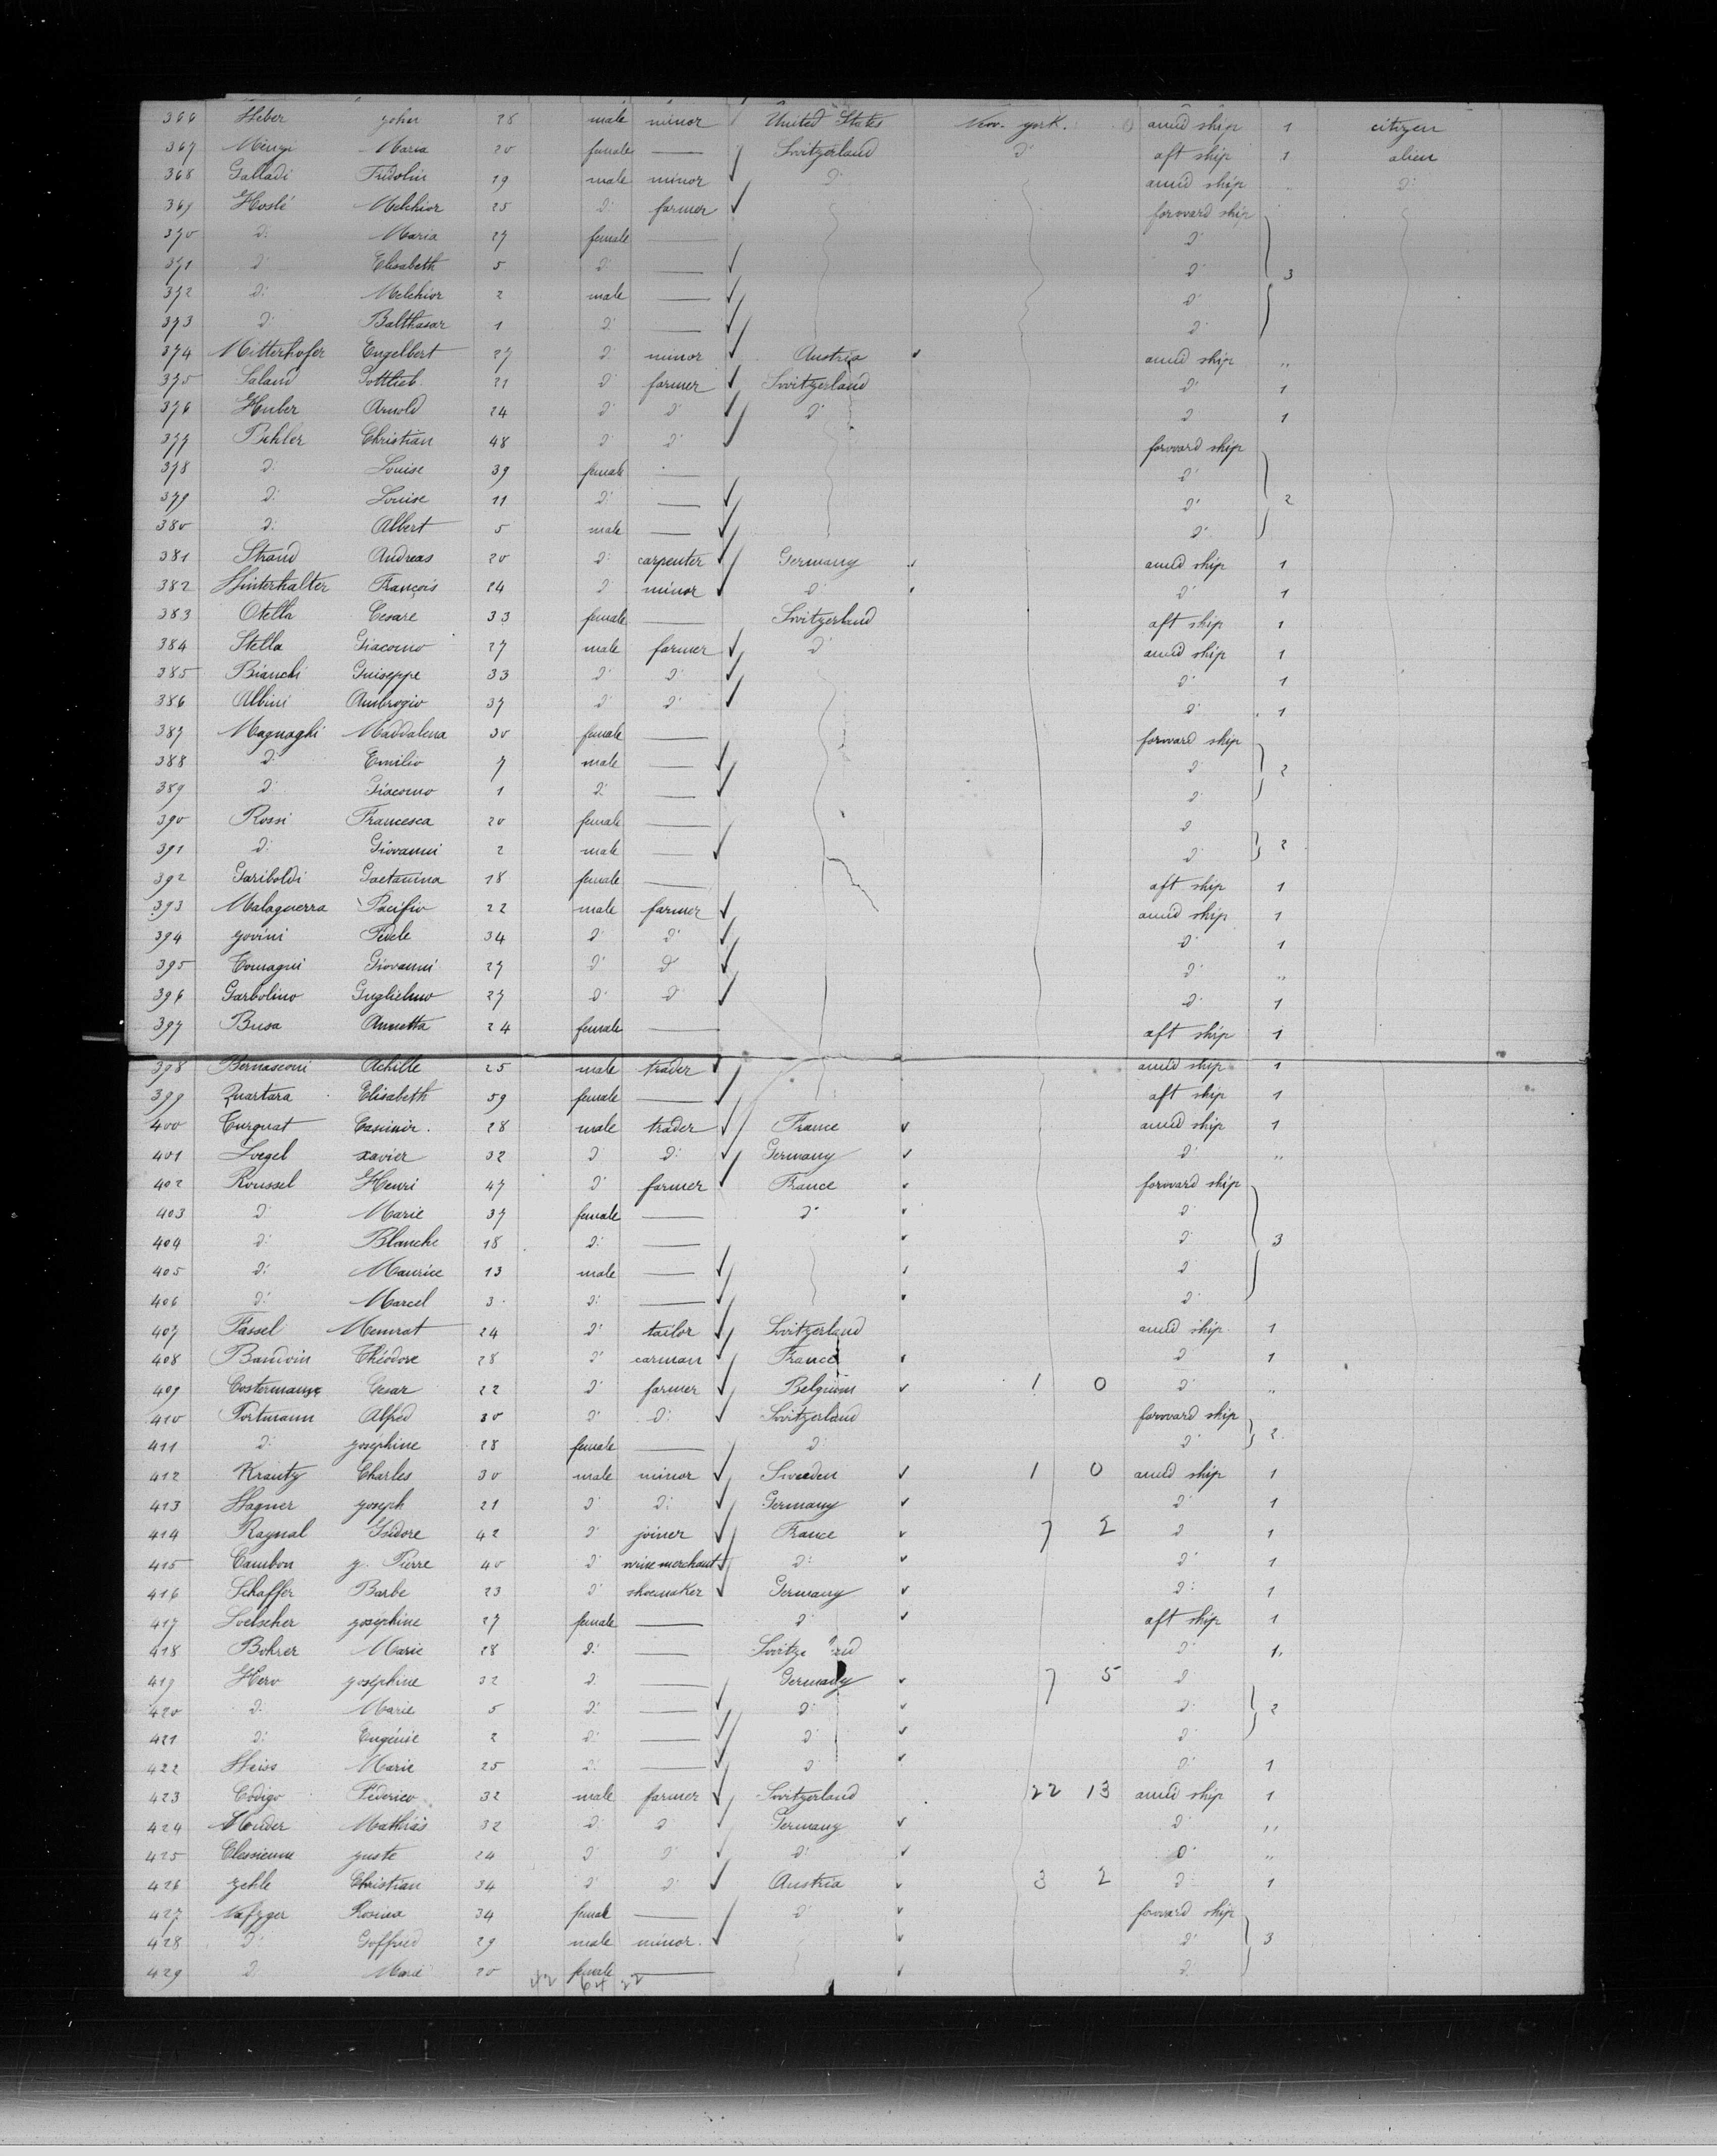 366 Héber 28 male minor United States New. york. amid ship 1 citizen
367 Maria 20 female — Switzerland d: aft ship 1 alien
368 Galladi Fridolin 19 male minor d: amid ship " d:
369 Hoslé Melchior 25 d: farmer forward ship
370 d: Maria 27 female — d:
371 d: Elisabeth 5 d: — d: 3
372 d: Melchior 2 male — d:
373 d: Balthasar 1 d: — d:
374 Mitterhofer Engelbert 27 d: minor Austria amid ship "
375 Saland Gottlieb 21 d: farmer Switzerland d: 1
376 Huber Arnold 24 d: d: d: d: 1
377 Bühler Christian 48 d: d: forward ship
378 d: Louise 39 female — d:
379 d: Louise 11 d: — d: 2
380 d: Albert 5 male — d:
381 Strand Andreas 20 d: carpenter Germany amid ship 1
382 Hinterhalter François 24 d: minor d: d: 1
383 Otella Cesare 33 female — Switzerland aft ship 1
384 Stella Giacomo 27 male farmer d: amid ship 1
385 Bianchi Guiseppe 33 d: d: d: 1
386 Albini Ambrogio 37 d: d: d: 1
387 Magnaghi Maddalena 30 female — forward ship
388 d: Emilio 7 male — d: 2
389 d: Giacomo 1 d: — d:
390 Rossi Francesca 20 female — d:
391 d: Giovanni 2 male — d: 2
392 Gariboldi Gaetanina 18 female — aft ship 1
393 Malaguerra Pacifio 22 male farmer amid ship 1
394 govini Fedele 34 d: d: d: 1
395 Giovanni 27 d: d: d: "
396 Garbolino Guglielmo 27 d: d: d: 1
397 Busa Annetta 24 female — aft ship 1
398 Bernasconi Achille 25 male trader amid ship 1
399 Quartara Elisabeth 59 female — aft ship 1
400 Casimir. 28 male trader France amid ship 1
401 Loegel xavier 32 d: d: Germany d: "
402 Roussel Henri 47 d: farmer France forward ship
403 d: Marie 37 female — d: d:
404 d: Blanche 18 d: — d: 3
405 d: Maurice 13 male — d:
406 d: Marcel 3 d: — d:
407 Fässel Memrat 24 d: tailor Switzerland amid ship 1
408 Baudoin Théodore 28 d: carman France d: 1
409 Costermanx Cesar 22 d: farmer Belgium 1 0 d: "
410 Portmann Alfred 30 d: d: Switzerland forward ship
411 d: josephine 28 female — d: d: 2
412 Krantz Charles 30 male minor Sweeden 1 0 amid ship 1
413 Hagner joseph 21 d: d: Germany d: 1
414 Raynal Isidore 42 d: joiner France 7 2 d: 1
415 Cambon j. Pierre 40 d: wine merchant d: d: 1
416 Schaffer Barbe 23 d: shoemaker Germany d: 1
417 Loelscher josephine 27 female — d: aft ship 1
418 Bohrer Marie 28 d: — d: 1
419 Herv josephine 32 d: — Germany 7 5 d:
420 d: Marie 5 d: — d: d: 2
421 d: Eugénie 2 d: — d: d:
422 Heiss Marie 25 d: — d: d: 1
423 Codigo Féderico 32 male farmer Switzerland 22 13 amid ship 1
424 Mathias 32 d: d: Germany d: "
425 juste 24 d: d: d: d: "
426 Christian 34 d: d: Austria 3 2 d: 1
427 Nafzger Rosina 34 female — d: forward ship
428 d: Goffried 29 male minor. d: 3
429 d: Marie 20 female — d:
42 64 22